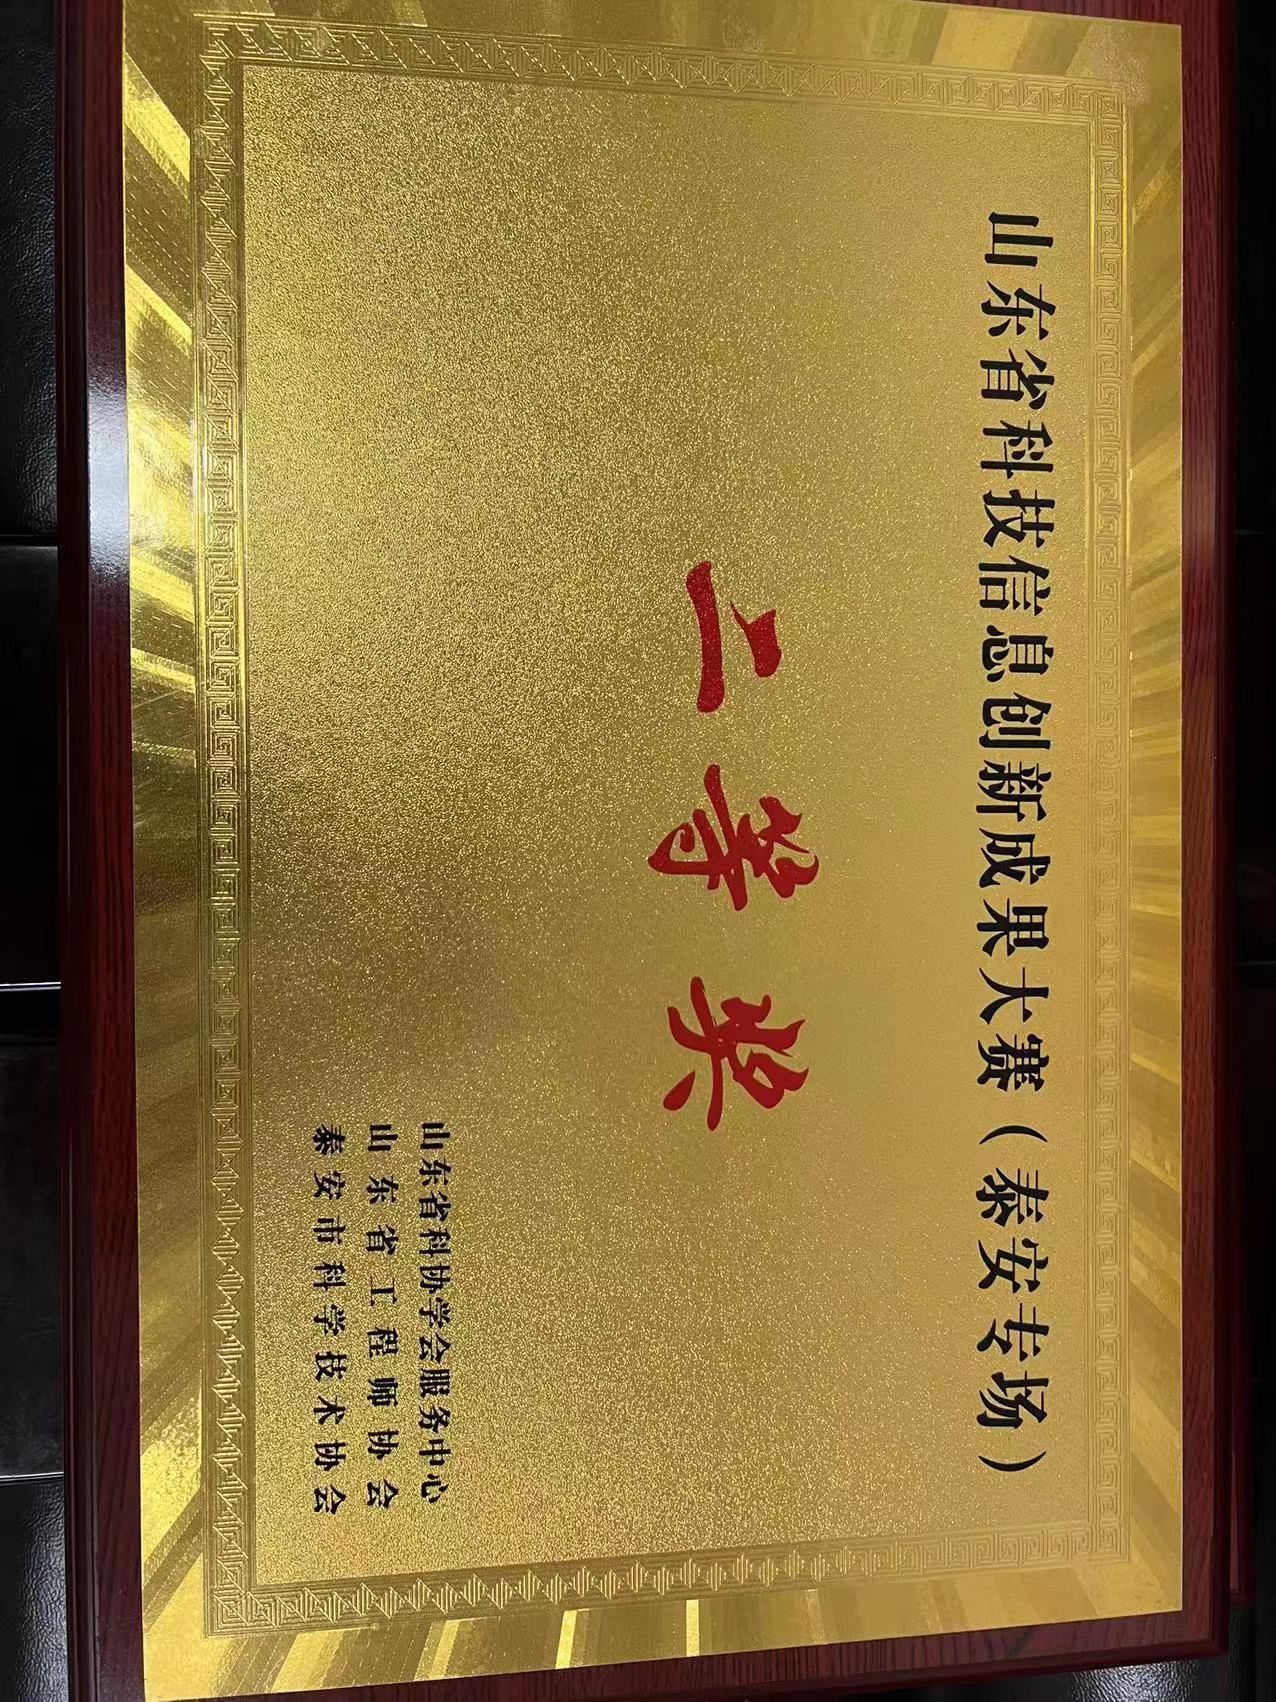 山东省科技信息创新成果大赛（泰安专场）
二等奖
山东省科协学会服务中心
山东省工程师协会
泰安市科学技术协会